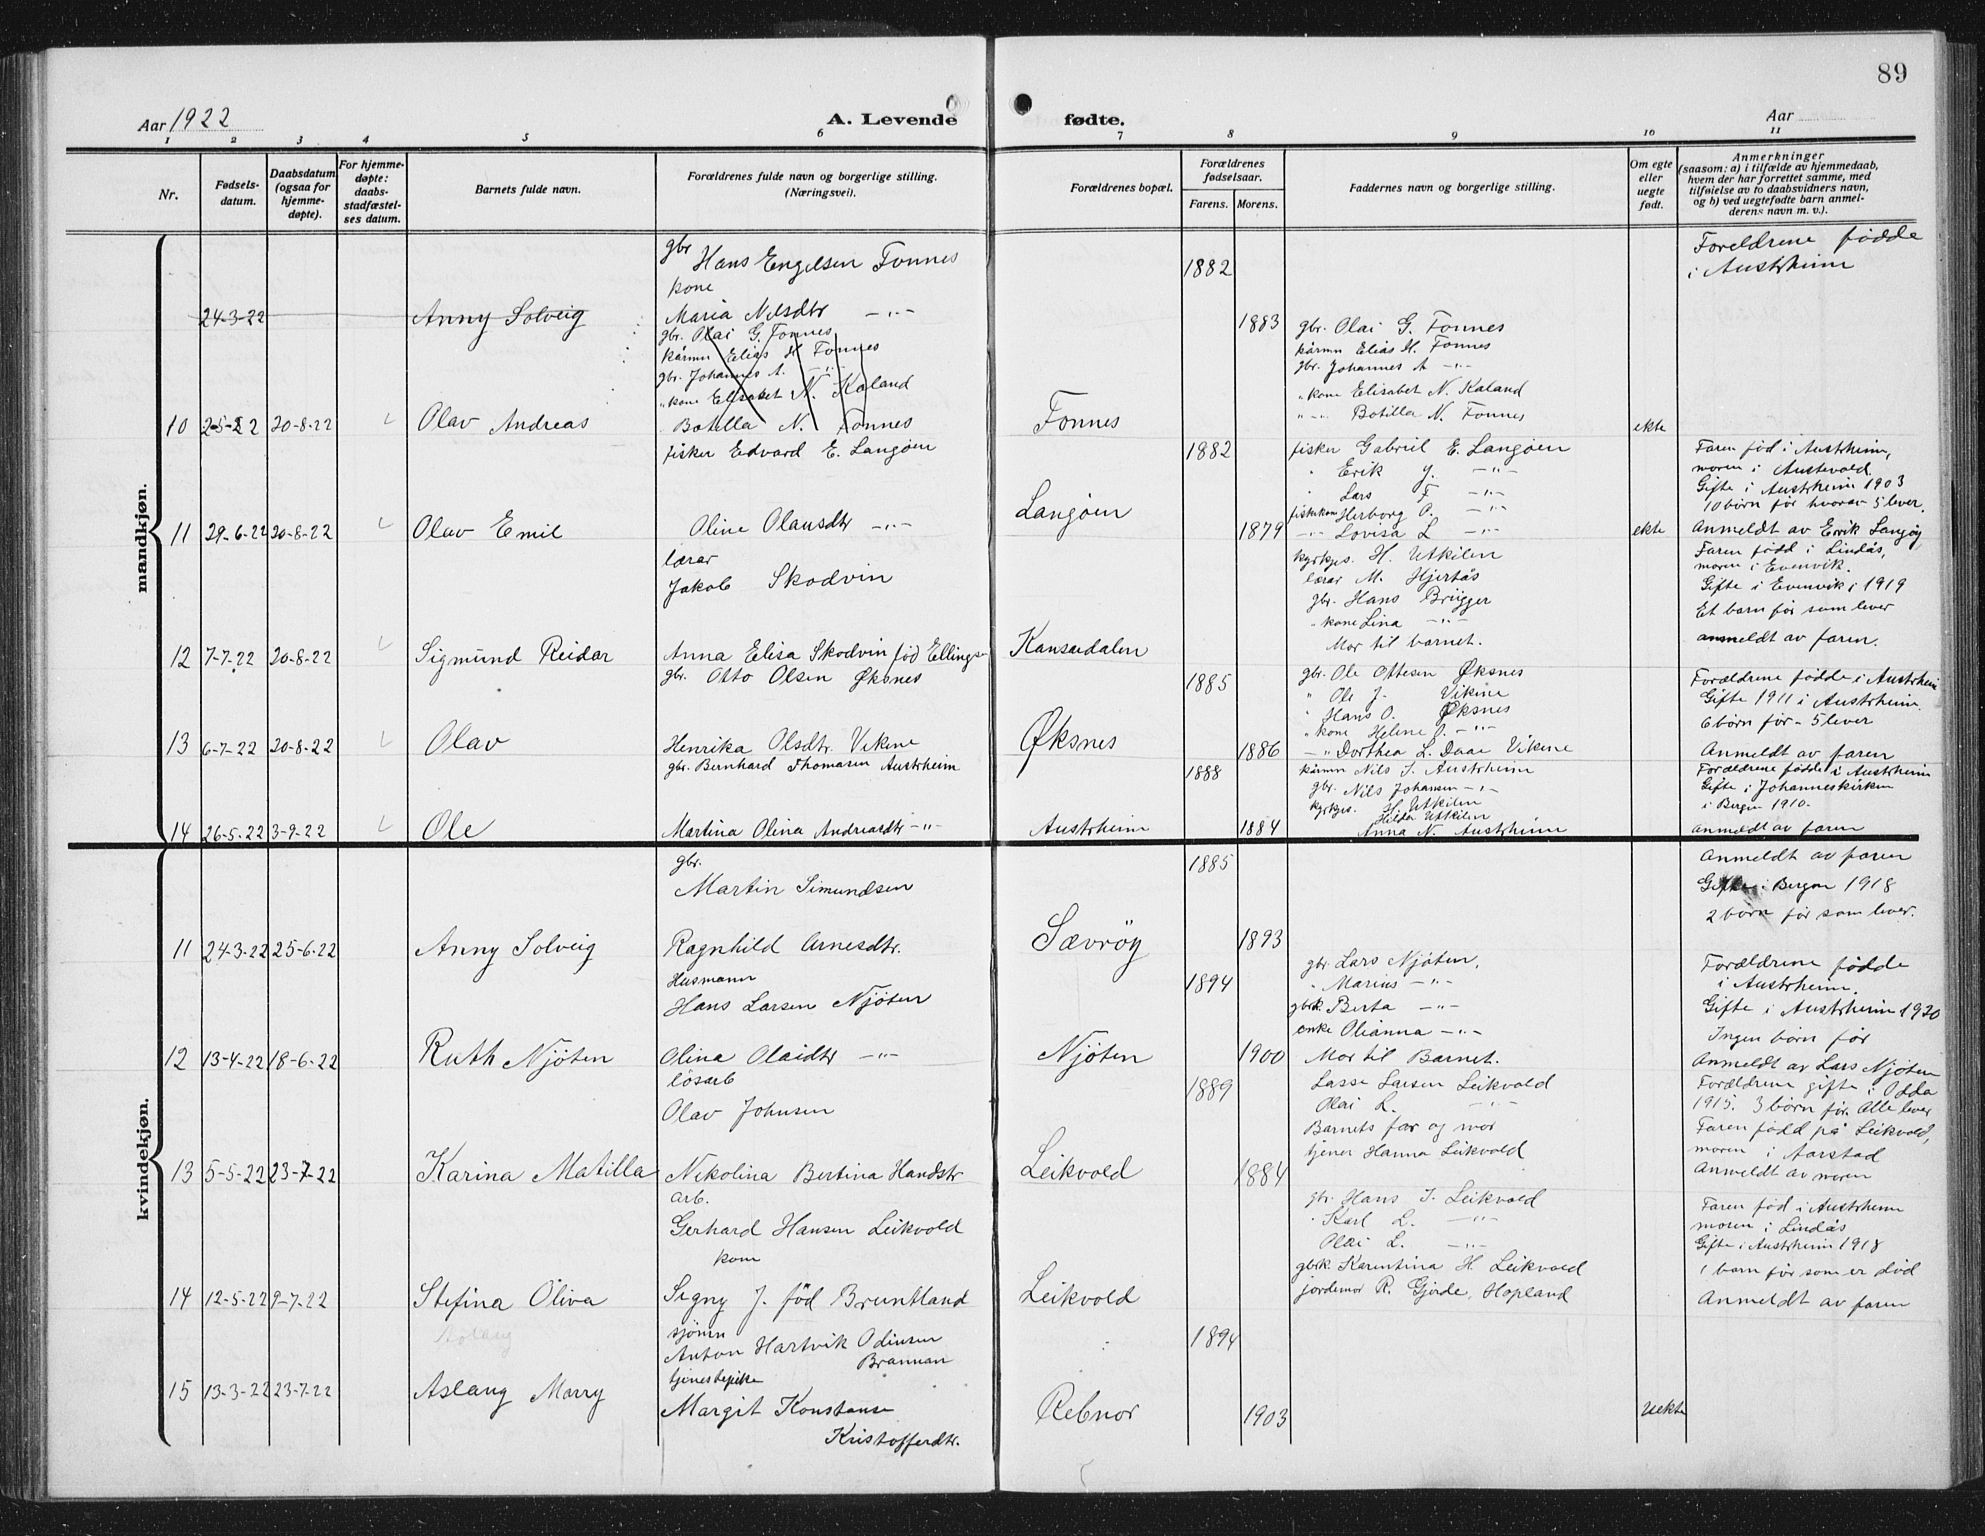 89
Aar 1922
A. Levende
fødte.
Aar
1 2 3 4 5 6 7 8 9 10 11
Nr.
Fødsels-
datum.
Daabsdatum
(ogsaa for
hjemme-
døpte).
For hjemme-
døpte:
daabs-
stadfæstel-
ses datum.
Barnets fulde navn.
Forældrenes fulde navn og borgerlige stilling.
(Næringsvei).
Forældrenes bopæl.
Forældrenes
fødselsaar.
Farens. Morens.
Faddernes navn og borgerlige stilling.
Om egte
eller
uegte
født.
Anmerkninger
(saasom: a) i tilfælde av hjemmedaab,
hvem der har forrettet samme, med
tilføielse av to daabsvidners navn,
og b) ved uegtefødte barn anmel-
derens navn m. v.).
mandkjøn.
24-3-22
Anny Solveig
gbr Hans Engelsen Fonnes
kone
Maria Nilsdtr -"-
gbr. Olai G. Fonnes
kårmn Elias H Fonnes
gbr. Johannes A. -"-
"kone Elisabet N. Kaland
Botilla N. Fonnes
10 2-5-22 20-8-22 Olav Andreas
Fonnes
1882
1883
gbr. Olai G. Fonnes
kårmn Elias H. Fonnes
gbr. Johannes A -"-
"kone Elisabet N. Kaland
" -"- Botilla N. Fonnes
ekte
Foreldrene fødde
i Austrheim
11 29-6-22 20-8-22 Olav Emil
fisker Edvard E. Langøen
Oline Olausdtr -"-
Langøen
1882
1879
fisker Gabriel E. Langøen
" Erik J. -"-
" Lars F -"-
fiskekone Herborg O. -"-
-"- Lovisa L -"-
ekte
Faren fød i Austrheim,
moren i Austevold.
Gifte i Austrheim 1903
10 børn før hvorav 5 lever.
Anmeldt av Erik Langøy
12 7-7-22 20-8-22 Sigmund Reidar
lærar
Jakob Skodvin
Anna Elisa Skodvin fød Ellingsen
Kansædalen
kyrkjes. H. Utkilen
lærar M. Hjertås
gbr. Hans Brügger
"kone Lina -"-
Mor til barnet.
Faren fødd i Lindås,
moren i Evenvik.
Gifte i Evenvik i 1919
Et barn før som lever
anmeldt av faren.
13 6-7-22 20-8-22 Olav
gbr. Otto Olsen Øksnes
Henrika Olsdtr. Vikene
Øksnes
1885
1886
gbr. Ole Ottesen Øksnes
" Ole J. Vikine
" Hans O. Øksnes
"kone Helene J. -"-
-"- Dorthea L. Daae Vikene
Forældrene fødde i Austrheim
Gifte 1911 i Austrheim.
6 børn før - 5 lever
Anmeldt av faren
14 26-5-22 3-9-22 Ole
gbr. Bernhard Thomasen Austrheim
Martina Olina Andreasdtr -"-
Austrheim
1888
1884
kårmn Nils I. Austrheim
gbr. Nils Johansen -"-
kyrkjes. H. Utkilen
Hilda Utkilen
Anna N. Austrheim
Forældrene fødde i Austrheim
Gifte i Johanneskirken
i Bergen 1910.
anmeldt av faren
kvindekjøn.
11 24-3-22 25-6-22 Anny Solveig
gbr.
Martin Simundsen
Ragnhild Arnesdtr.
Sævrøy
1885
1893
Anmeldt av faren
Gifte i Bergen 1918
2 børn før som lever.
12 13-4-22 18-6-22 Ruth Njøten
Husmann
Hans Larsen Njøten
Olina Olaidtr -"-
Njøten
1894
1900
gbr Lars Njøten,
" Marius -"-
gbrk Berta -"-
enke Olianna -"-
Mor til Barnet.
Forældrene fødde
i Austrheim.
Gifte i Austrheim 1920
Ingen børn før
Anmeldt av Lars Njøten
13 5-5-22 23-7-22 Karina Matilla
løsarb
Olav Johnsen
Nikolina Bertina Handstr
Leikvold
1889
1884
Lasse Larsen Leikvold
Olai L. -"-
Barnets far og mor
tjener Hanna Leikvold
Forældrene gifte i Odda
1915. 3 børn før. Alle lever
Faren fødd på Leikvold,
moren i Aarstad
Anmeldt av moren
14 12-5-22 9-7-22 Stefina Oliva
arb.
Gerhard Hansen Leikvold
kone
Signy J. fød Bruntland
Leikvold
gbr. Hans I. Leikvold
" Karl L. -"-
Olai L. -"-
gbrk Karentina H Leikvold
jordemor R. Gjerde, Hopland
Faren fød i Austrheim
moren i Lindås
Gifte i Austrheim 1918
1 barn før som er død
Anmeldt av faren
15 13-3-22 23-7-22 Aslaug Marry
Aslaug
sjömn
Anton Hartvik Odinsen
Brannan
tjenestepike
Margit Konstanse
Kristofferdtr.
Rebnor
1894
1903
uekte